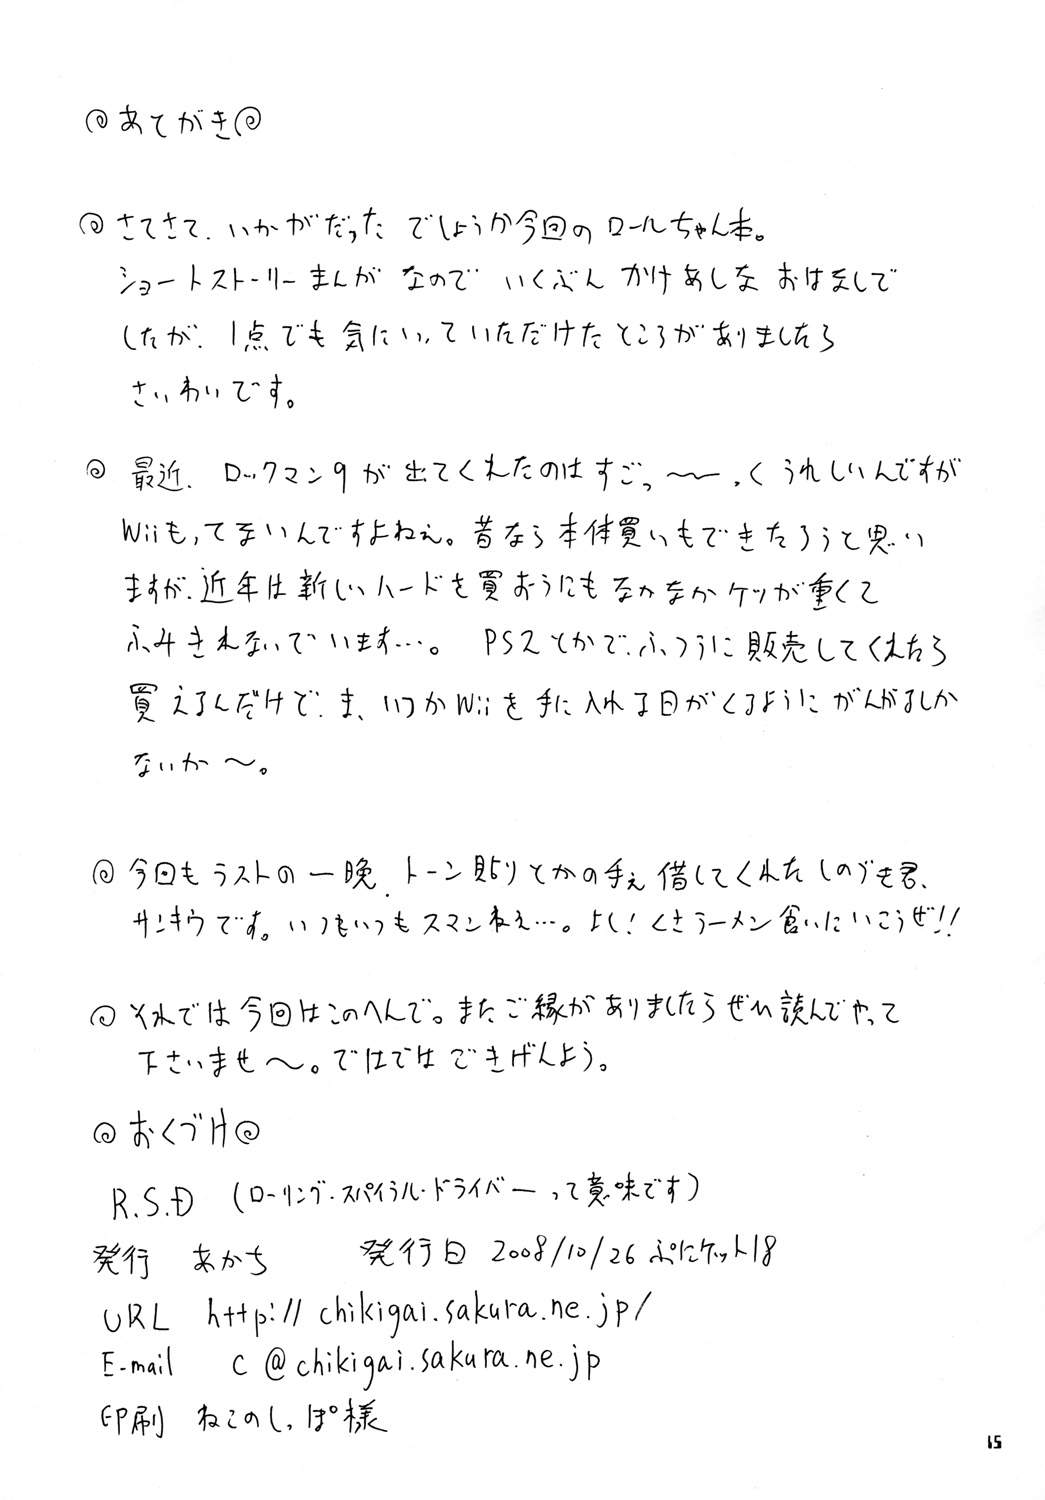 あとがき
さてさて、いかがだったでしょうか今回のロールちゃん本。
ショートストーリーまんがなのでいくぶんかけあしなおはなしで
したが、1点でも気にいっていただけたところがありましたら
さいわいです。
最近、ロックマン9が出てくれたのはすごっ〜〜、くうれしいんですが
Wiiもってないんですよねぇ。昔なら本体買いもできたろうと思い
ますが、近年は新しいハードを買おうにもなかなかケツが重くて
ふみきれないでいます…。PS2とかで、ふつうに販売してくれたら
買えるんだけど、ま、いつかWiiを手に入れる日がくるようにがんばるしか
ないか〜。
今回もラストの一晩、トーン貼りとかの手を借してくれたしのづも君、
サンキウです。いつもいつもスマンねぇ…。よし!くさラーメン食いにいこうぜ!!
それでは今回はこのへんで。またご縁がありましたらぜひ読んでやって
下さいませ〜。ではではごきげんよう。
おくづけ
R.S.D (ローリング・スパイラル・ドライバーって意味です)
発行 あかち 発行日 2008/10/26 ぷにケット18
URL http://chikigai.sakura.ne.jp/
E-mail c@chikigai.sakura.ne.jp
印刷 ねこのしっぽ様
15